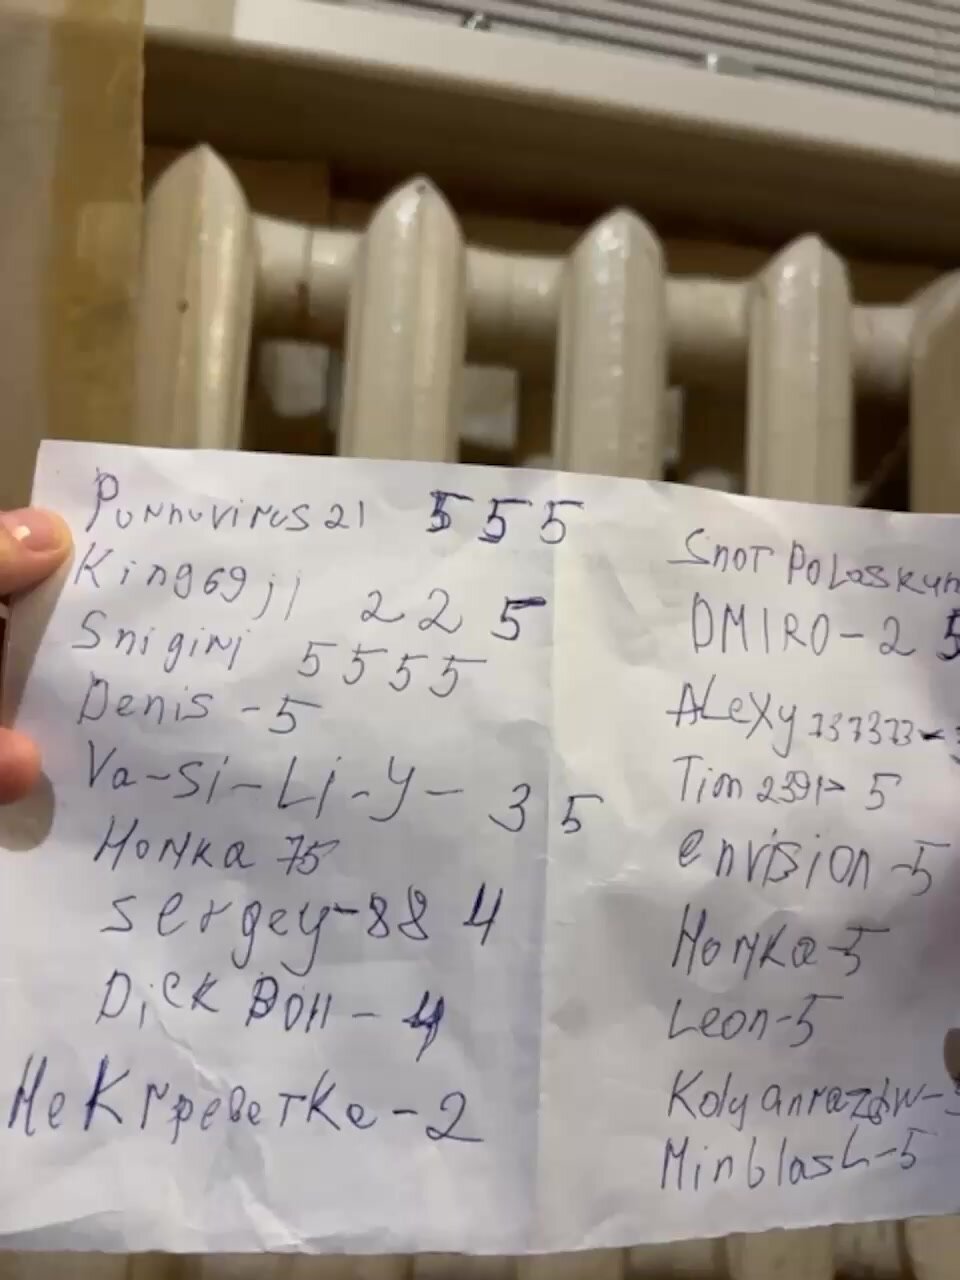 Punnuvirus21 555
King69jl 2 2 5
Snigirj 5555
Denis -5
Va-Si-Li-y- 3 5
Monka 75
Sergey-88 4
Dick DOH - 4
Не Креветка-2
Snot Poloskun
DMIRO-2 5
ALexy 737373-
Tim 2391- 5
envision-5
Monka-5
Leon-5
Kolyanrazdw-
Minblash-5